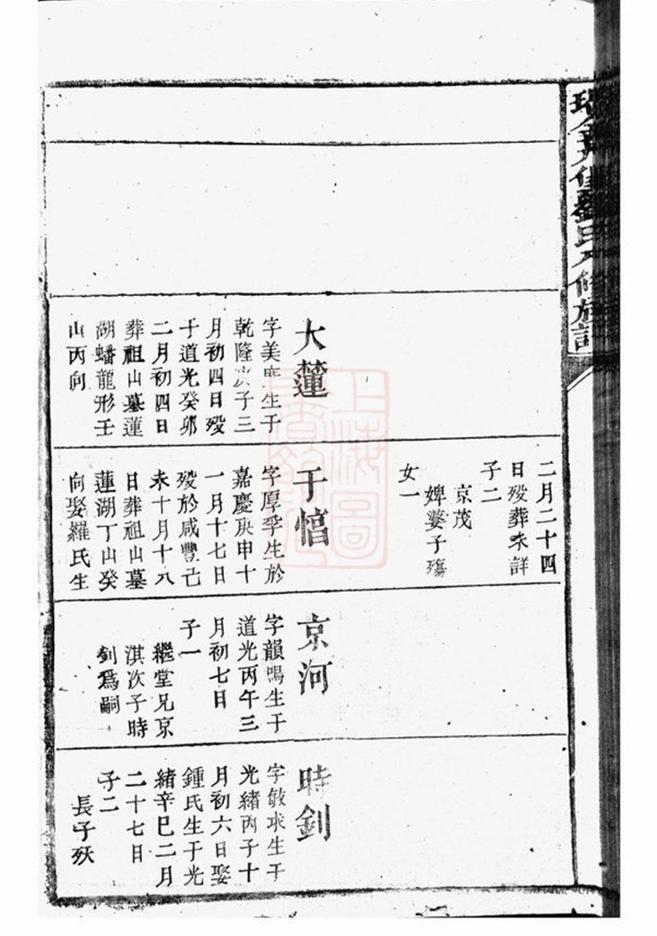 氏
族
二月二十四
日歿葬未詳
子二
京茂
婢婆子殤
女一
大蓮
字美 生于
乾隆庚子三
月初四日歿
于道光癸卯
二月初四日
葬祖山墓蓮
湖蟠龍形壬
山丙向
于悟
字厚孚生於
嘉慶庚申十
一月十七日
歿於咸豐己
未十月十八
日葬祖山墓
蓮湖丁山癸
向娶羅氏生
京河
字韻鳴生于
道光丙午三
月初七日
子一
繼堂兄京
淇次子時
釗為嗣
時釗
字敏求生于
光緒丙子十
月初六日娶
鍾氏生于光
緒辛巳二月
二十七日
子二
長子殀
上海圖